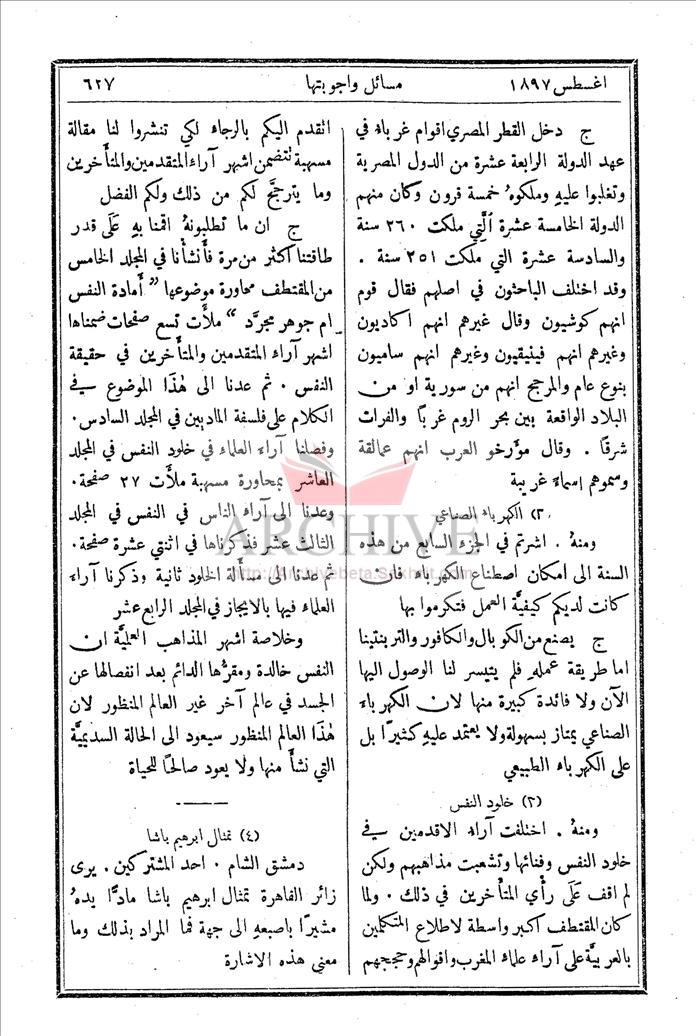 اغسطس ١٨٩٧
مسائل واجوبتها
٦٢٧
ج دخل القطر المصري اقوام غرباء في
عهد الدولة الرابعة عشرة من الدول المصرية
وتغلبوا عليه وملكوهُ خمسة قرون وكان منهم
الدولة الخامسة عشرة الَّتي ملكت ٢٦٠ سنة
والسادسة عشرة التي ملكت ٢٥١ سنة .
وقد اختلف الباحثون في اصلهم فقال قوم
انهم كوشيون وقال غيرهم انهم اكاديون
وغيرهم انهم فينيقيون وغيرهم انهم ساميون
بنوع عام والمرجح انهم من سورية او من
البلاد الواقعة بين بحر الروم غربًا والفرات
شرقًا . وقال مؤرخو العرب انهم عمالقة
وسموهم اسماء غريبة
(٢) الكهرباء الصناعي
ومنهُ . اشرتم في الجزء السابع من هذه
السنة الى امكان اصطناع الكهرباء فان
كانت لديكم كيفيَّة العمل فتكرموا بها
ج يصنع من الكوبال والكافور والتربنتينا
اما طريقة عمله فلم يتيسر لنا الوصول اليها
الآن ولا فائدة كبيرة منها لان الكهرباء
الصناعي يمتاز بسهولة ولا يعتمد عليه كثيرًا بل
على الكهرباء الطبيعي
(٣) خلود النفس
ومنهُ . اختلفت آراء الاقدمين في
خلود النفس وفنائها وتشعبت مذاهبهم ولكن
لم اقف عَلَى رأي المتأخرين في ذلك . ولما
كان المقتطف اكبر واسطة لاطلاع المتكلمين
بالعربيَّة على آراء علماء المغرب واقوالهم وحججهم
اتقدم اليكم بالرجاء لكي تنشروا لنا مقالة
مسهبة تتضمن اشهر آراء المتقدمين والمتأخرين
وما يترجَّح لكم من ذلك ولكم الفضل
ج ان ما تطلبونهُ اقمنا بهِ عَلَى قدر
طاقتنا اكثر من مرة فأنشأنا في المجلد الخامس
من المقتطف محاورة موضوعها " أمادة النفس
ام جوهر مجرَّد " ملأَت تسع صفحات ضمناها
اشهر آراء المتقدمين والمتأخرين في حقيقة
النفس . ثم عدنا الى هٰذا الموضوع في
الكلام على فلسفة الماديين في المجلد السادس.
وفصلنا آراء العلماء في خلود النفس في المجلد
العاشر بمحاورة مسهبة ملأت ٢٧ صفحة.
وعدنا الى آراء الناس في النفس في المجلد
الثالث عشر فذكرناها في اثنتي عشرة صفحة.
ثم عدنا الى مسأَلة الخلود ثانية وذكرنا آراء
العلماء فيها بالايجاز في المجلد الرابع عشر
وخلاصة اشهر المذاهب العلميَّة ان
النفس خالدة ومقرُّها الدائم بعد انفصالها عن
الجسد في عالم آخر غير العالم المنظور لان
هٰذا العالم المنظور سيعود الى الحالة السديميَّة
التي نشأ منها ولا يعود صالحًا للحياة
(٤) تمثال ابرهيم باشا
دمشق الشام . احد المشتركين . يرى
زائر القاهرة تمثال ابرهيم باشا مادًّا يدهُ
مشيرًا باصبعهِ الى جهة فما المراد بذلك وما
معنى هذه الاشارة
ARCHIVE
http://Archivebeta.Sakhrit.com